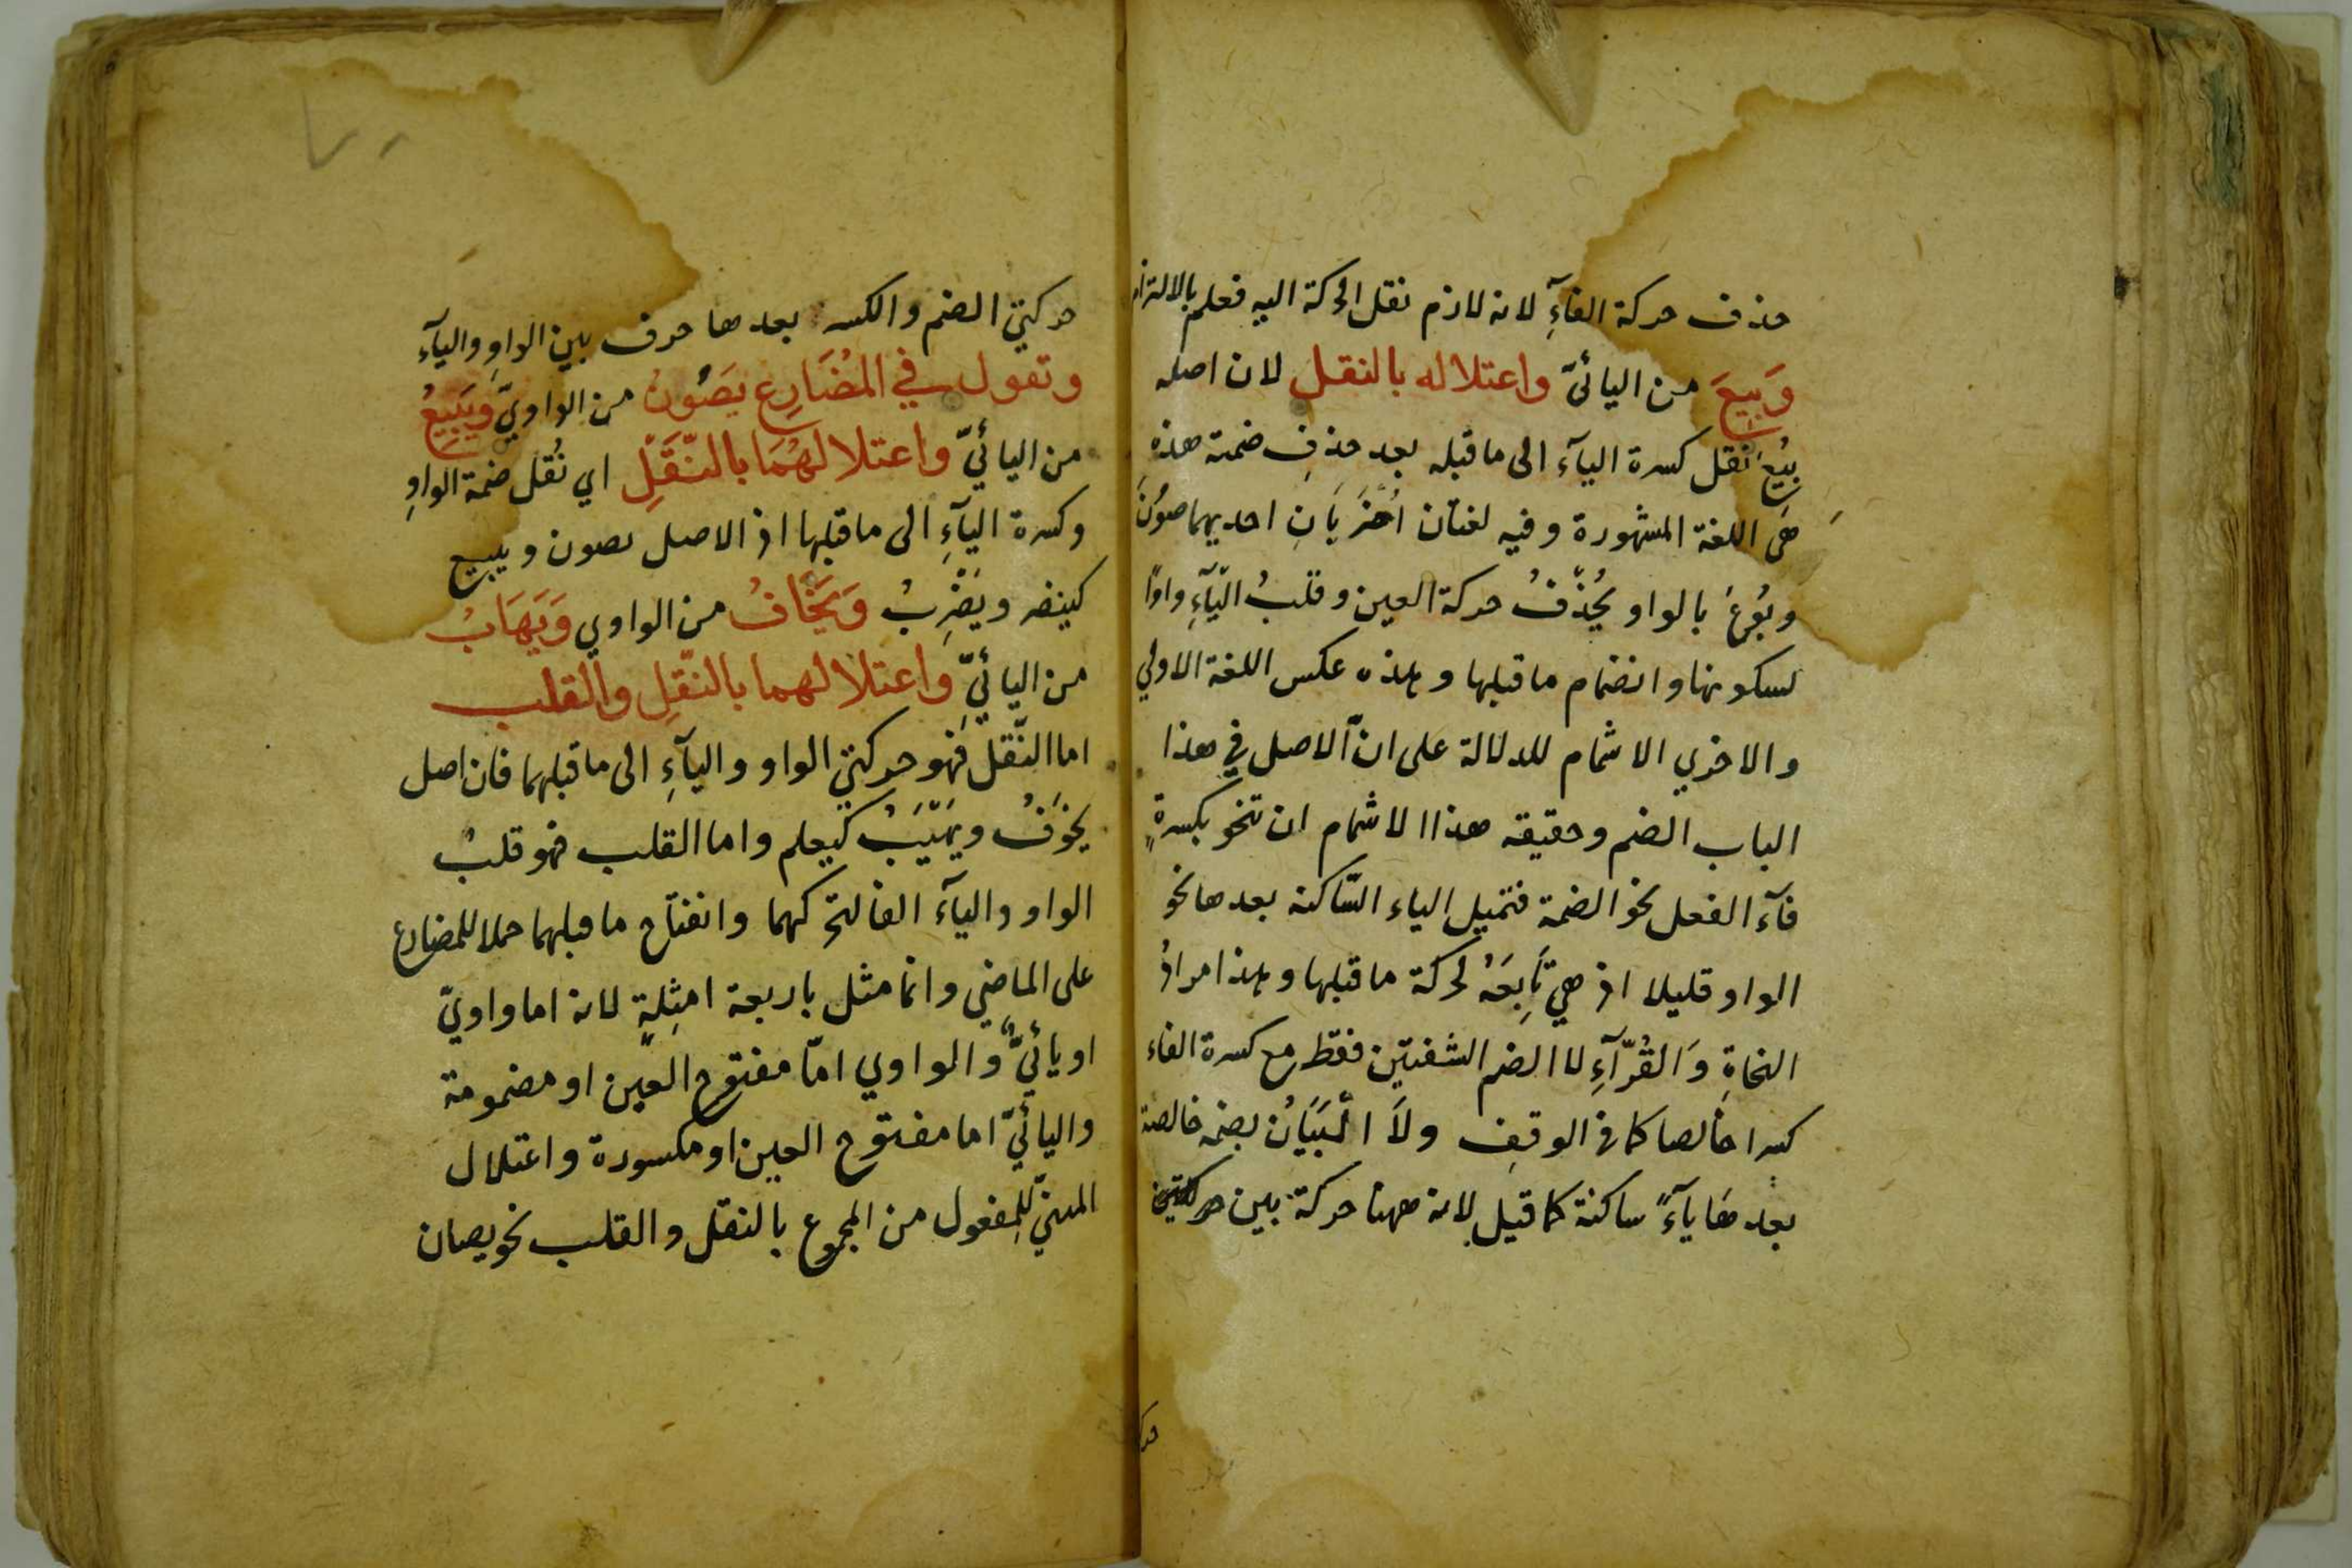 حذف حركة الفآءِ لانه لازم نقل الحركة اليه فعلم بالالتزام
وَبِيعَ من اليائىّ واعتلاله بالنقل لان اصله
بُيِعَ نقل كسرة اليآء الى ما قبله بعد حذفِ ضمته هذه
هى اللغة المشهورة وفيه لغتان اُخْرَيَانِ احديهما صُوْنَ
وبُوعَ بالواو يُحْذَفُ حركة العين وقلبُ اليّآءِ واوًا
لسكونها وانضمام ما قبلها وهذه عكس اللغة الاولي
والاخري الاشمام للدلالة على انّ الاصل في هذا
الباب الضم وحقيقه هذا الاشمام ان تنحو بكسرةٍ
فآء الفعل نحو الضمة فتميل الياء السّاكنة بعدها نحو
الواو قليلا اذ هي تَابِعَةٌ لحركة ما قبلها وهذا مرادُ
النحاةِ وَالقُرّآءِ لا الضم الشفتين فقط مع كسرة الفاء
كسرا خالصا كما فى الوقف ولَا اتْيَانُ بضمه خالصة
بعدهَا يآءً ساكنة كما قيل لانه ههنا حركة بين حركتين
حركتي الضم والكسر بعدها حرف بين الواوِ واليآء
وتقول في المُضَارِعِ يَصُونُ من الواويّ ويَبِيعُ
من اليائيّ واعتلالهُمَا بالنّقَلِ اي نُقل ضمة الواوِ
وكسرة اليآءِ الى ما قبلها اذ الاصل يصون ويبيع
كينصر ويَضْرِبُ وَيَخَافُ من الواوي وَيَهَابُ
من اليائيّ واعتلالهما بالنّقلِ والقلب
اما النّقل فهو حركتي الواو واليآءِ الى ما قبلهما فان اصل
يخْوَفُ ويَهْيَبُ كيعلم واما القلب فهو قلبُ
الواو واليآء الفا لتحركهما وانفتاح ما قبلهما حملا للمضارع
على الماضي وانما مثل باربعة امثِلةٍ لانه اما واويّ
او يائيّ والواوي امّا مفتوح العين او مضمومة
واليائيّ اما مفتوح العين او مكسورة واعتلال
المبنيّ للِمفعول من المجموع بالنقل والقلب نحو يصان